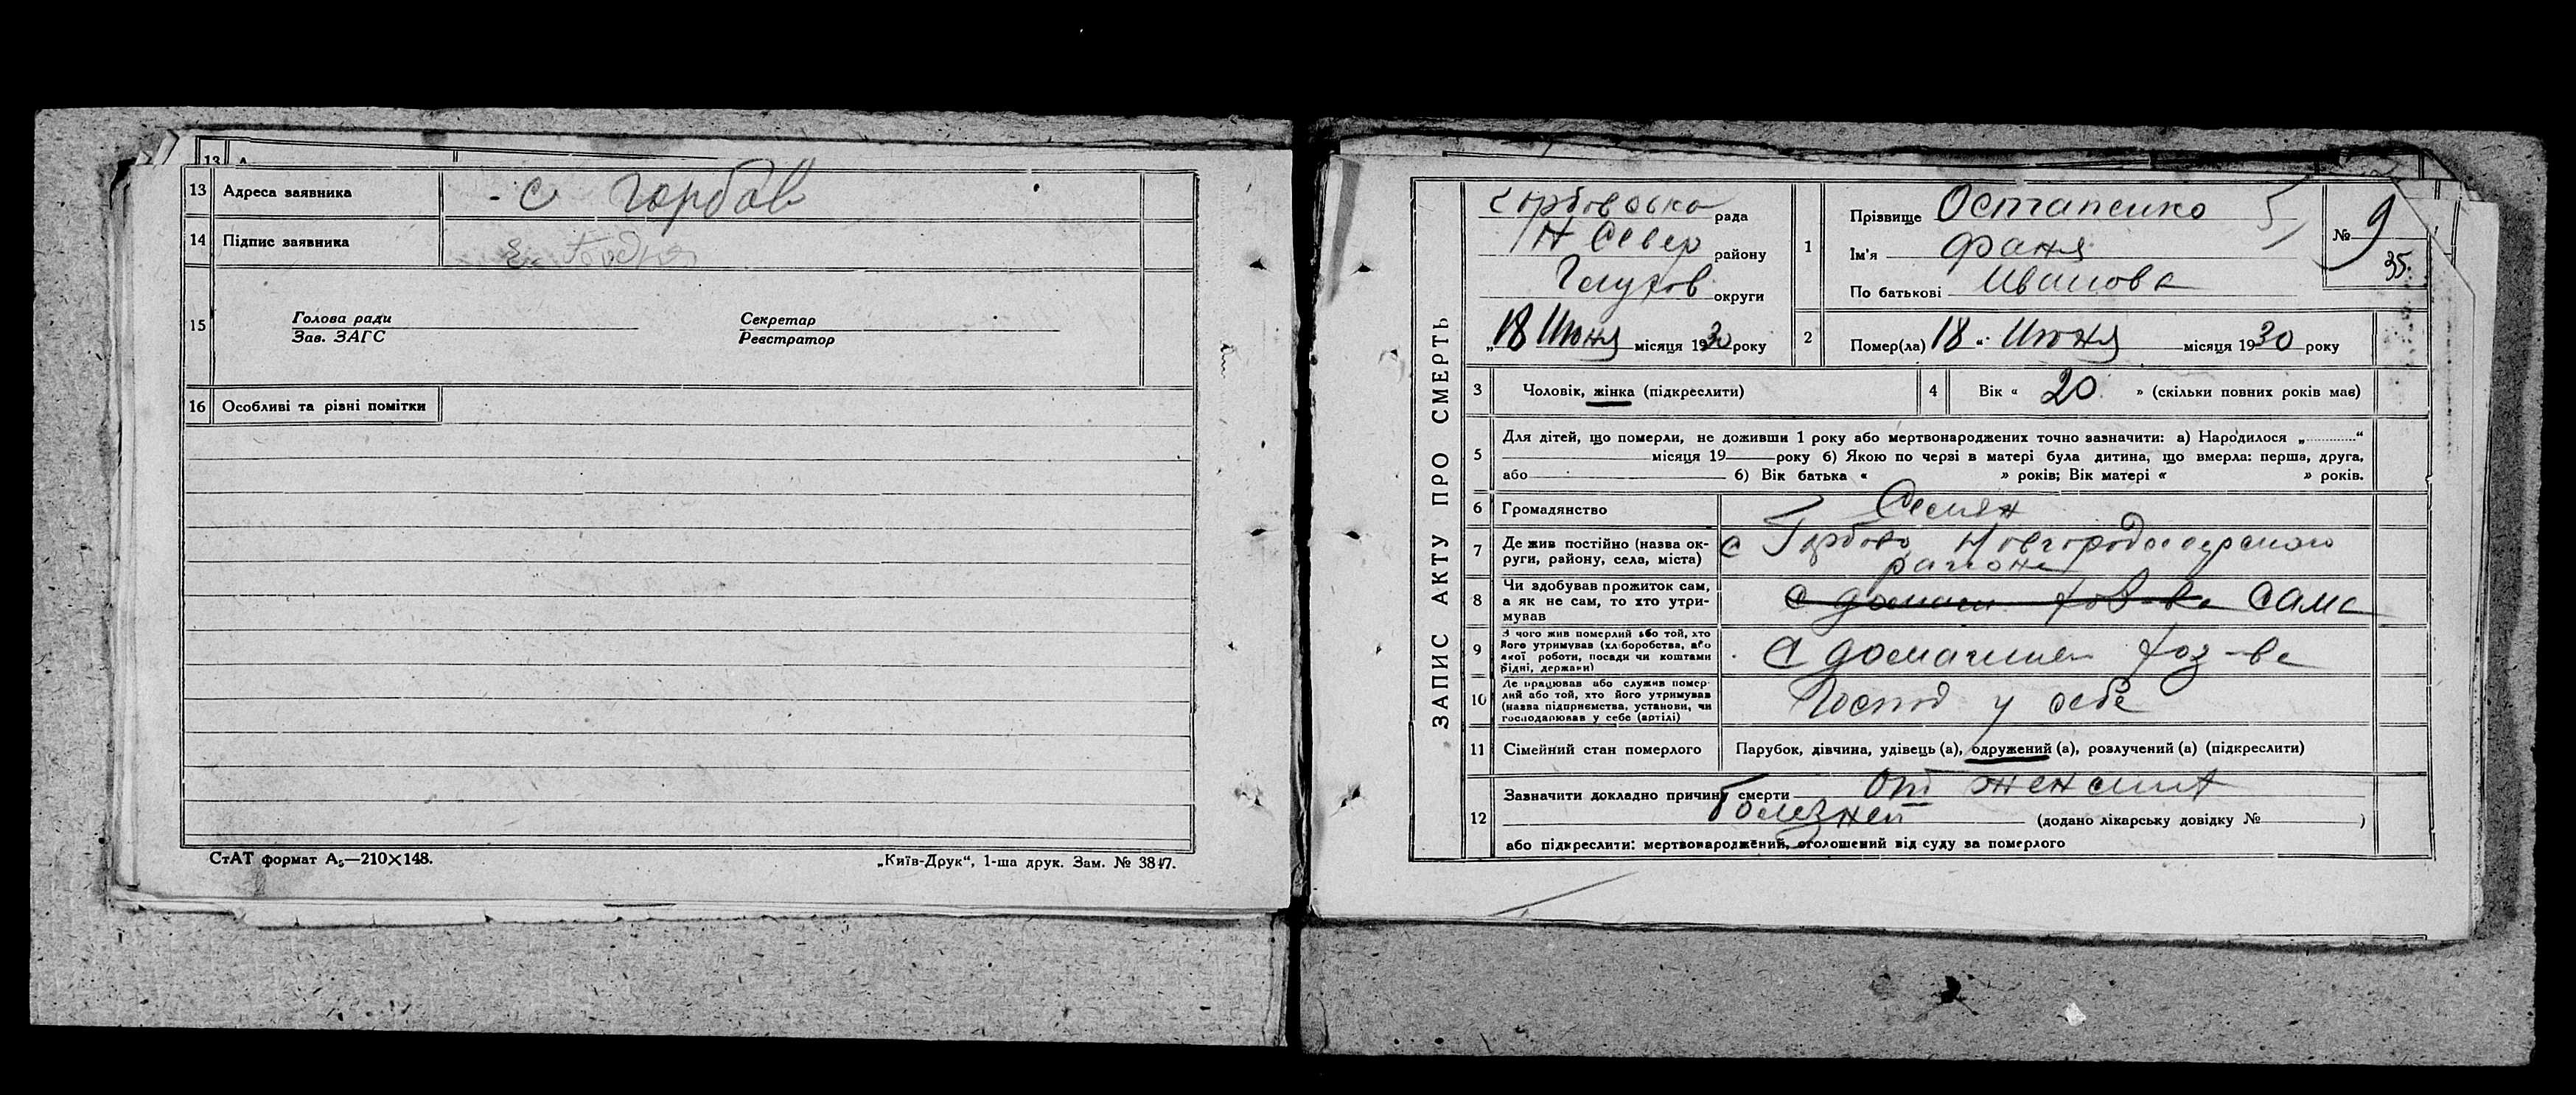 13 Адреса заявника с Горбов
14 Підпис заявника
15 Голова ради
Зав. ЗАГС
Секретар
Реєстратор
16 Особливі та різні помітки
СтАТ формат А₅—210×148.
„Київ-Друк“, 1-ша друк. Зам. № 3847.
ЗАПИС АКТУ ПРО СМЕРТЬ
Горбовська рада
Н Север району
Глухов округи
„18 Июня місяця 1930 року
1 Прізвище Остапенко
Ім'я Фаня
По батькові Иванова
№ 9
35.
2 Помер(ла) 18 “ Июня місяця 1930 року
3 Чоловік, жінка (підкреслити)
4 Вік « 20 » (скільки повних років має)
5 Для дітей, що померли, не доживши 1 року або мертвонароджених точно зазначити: а) Народилося „ “
місяця 19 року б) Якою по черзі в матері була дитина, що вмерла: перша, друга,
або б) Вік батька « » років; Вік матері « » років.
6 Громадянство Селян
7 Де жив постійно (назва ок-
руги, району, села, міста)
с Горбово Новгородсеверского
района
8 Чи здобував прожиток сам,
а як не сам, то хто утри-
мував
сама
9 З чого жив померлий або той, хто
його утримував (хліборобства, або
якої роботи, посади чи коштами
рідні, держави)
С домашнего хоз-ва
10 Де працював або служив помер-
лий або той, хто його утримував
(назва підприємства, установи, чи
господарював у себе (артілі)
Господ у себе
11 Сімейний стан померлого Парубок, дівчина, удівець (а), одружений (а), розлучений (а) (підкреслити)
12 Зазначити докладно причину смерти От женских
болезней (додано лікарську довідку № )
або підкреслити: мертвонароджений, оголошений від суду за померлого